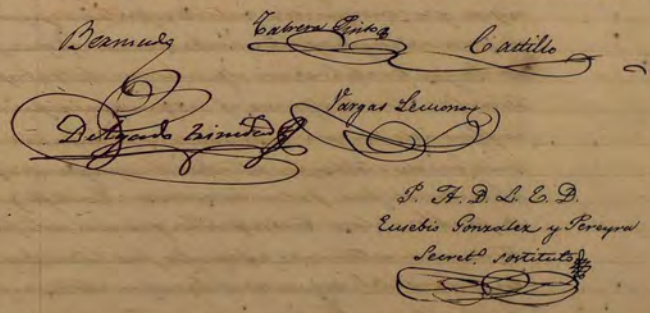 Bermudez
Cabrera Pinto
Castillo
Delgado Trinidad
Vargas Lemonez
P. A. D. L. E. D.
Eusebio Gonzalez y Pereyra
Secret.º sostituto